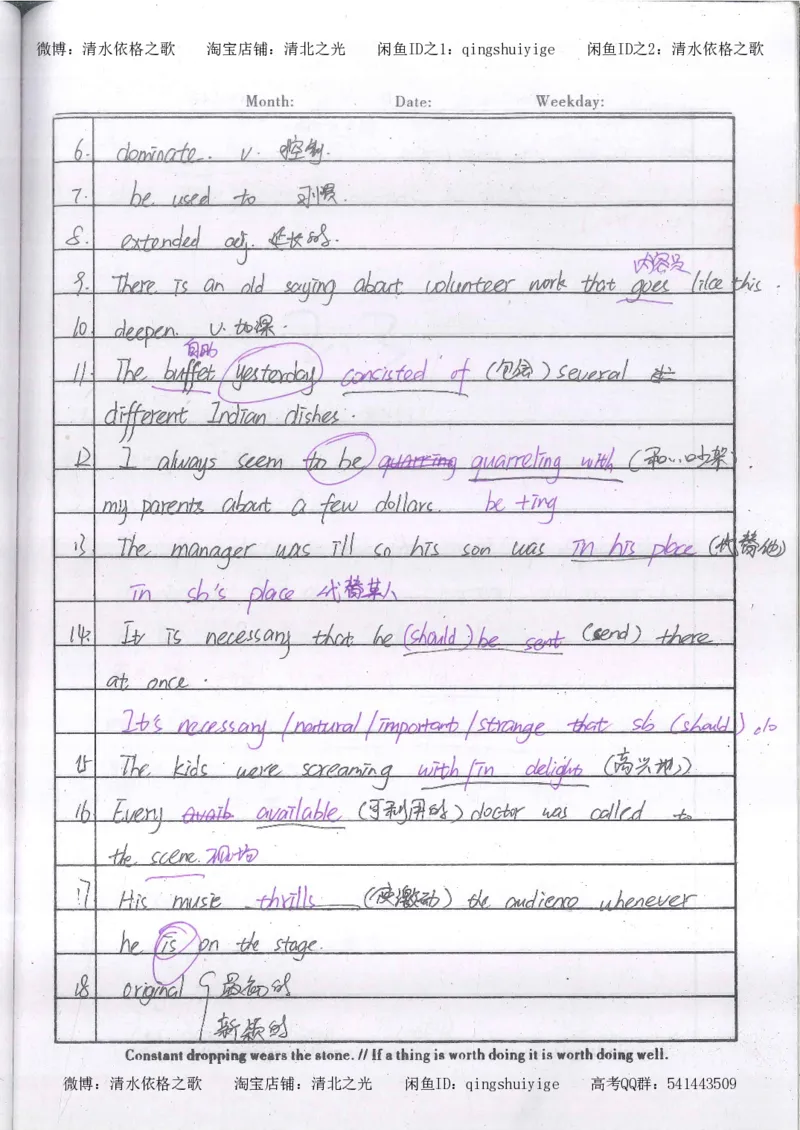 微博：清水依格之歌 淘宝店铺：清北之光 闲鱼ID之1：qingshuiyige 闲鱼ID之2：清水依格之歌
Month: Date: Weekday:
6. dominate. v. 控制.
7. be used to 习惯.
8. extended adj. 延长的.
内容是
9. There is an old saying about volunteer work that goes like this.
10. deepen. v. 加深.
自助
11. The buffet yesterday concisted of (包含) several
different Indian dishes.
12. I always seem to be quarring quarreling with (和…吵架).
my parents about a few dollars. be +ing
13. The manager was ill so his son was in his place (代替他)
in sb's place 代替某人
14. It is necessary that he (should) be sent (send) there
at once.
It's necessary /natural/important/strange that sb (should) do
15 The kids were screaming with/in delight (高兴地)
16 Every avaib available (可利用的) doctor was called to
the scene. 现场
17 His music thrills (使激动) the audience whenever
he is on the stage.
18 original { 最初的
新颖的
Constant dropping wears the stone. // If a thing is worth doing it is worth doing well.
微博：清水依格之歌 淘宝店铺：清北之光 闲鱼ID：qingshuiyige 高考QQ群：541443509